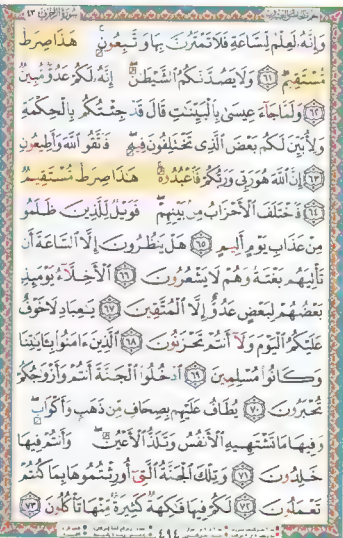 سورة الزخرف ٤٣
وَإِنَّهُۥ لَعِلْمٌ لِّلسَّاعَةِ فَلَا تَمْتَرُنَّ بِهَا وَٱتَّبِعُونِ ۚ هَٰذَا صِرَٰطٌ
مُّسْتَقِيمٌ ٦١ وَلَا يَصُدَّنَّكُمُ ٱلشَّيْطَٰنُ ۖ إِنَّهُۥ لَكُمْ عَدُوٌّ مُّبِينٌ
٦٢ وَلَمَّا جَآءَ عِيسَىٰ بِٱلْبَيِّنَٰتِ قَالَ قَدْ جِئْتُكُم بِٱلْحِكْمَةِ
وَلِأُبَيِّنَ لَكُم بَعْضَ ٱلَّذِى تَخْتَلِفُونَ فِيهِ ۖ فَٱتَّقُوا۟ ٱللَّهَ وَأَطِيعُونِ
٦٣ إِنَّ ٱللَّهَ هُوَ رَبِّى وَرَبُّكُمْ فَٱعْبُدُوهُ ۚ هَٰذَا صِرَٰطٌ مُّسْتَقِيمٌ
٦٤ فَٱخْتَلَفَ ٱلْأَحْزَابُ مِنۢ بَيْنِهِمْ ۖ فَوَيْلٌ لِّلَّذِينَ ظَلَمُوا۟
مِنْ عَذَابِ يَوْمٍ أَلِيمٍ ٦٥ هَلْ يَنظُرُونَ إِلَّا ٱلسَّاعَةَ أَن
تَأْتِيَهُم بَغْتَةً وَهُمْ لَا يَشْعُرُونَ ٦٦ ٱلْأَخِلَّآءُ يَوْمَئِذٍۭ
بَعْضُهُمْ لِبَعْضٍ عَدُوٌّ إِلَّا ٱلْمُتَّقِينَ ٦٧ يَٰعِبَادِ لَا خَوْفٌ
عَلَيْكُمُ ٱلْيَوْمَ وَلَآ أَنتُمْ تَحْزَنُونَ ٦٨ ٱلَّذِينَ ءَامَنُوا۟ بِـَٔايَٰتِنَا
وَكَانُوا۟ مُسْلِمِينَ ٦٩ ٱدْخُلُوا۟ ٱلْجَنَّةَ أَنتُمْ وَأَزْوَٰجُكُمْ
تُحْبَرُونَ ٧٠ يُطَافُ عَلَيْهِم بِصِحَافٍ مِّن ذَهَبٍ وَأَكْوَابٍ ۖ
وَفِيهَا مَا تَشْتَهِيهِ ٱلْأَنفُسُ وَتَلَذُّ ٱلْأَعْيُنُ ۖ وَأَنتُمْ فِيهَا
خَٰلِدُونَ ٧١ وَتِلْكَ ٱلْجَنَّةُ ٱلَّتِىٓ أُورِثْتُمُوهَا بِمَا كُنتُمْ
تَعْمَلُونَ ٧٢ لَكُمْ فِيهَا فَٰكِهَةٌ كَثِيرَةٌ مِّنْهَا تَأْكُلُونَ ٧٣
٤٩٤